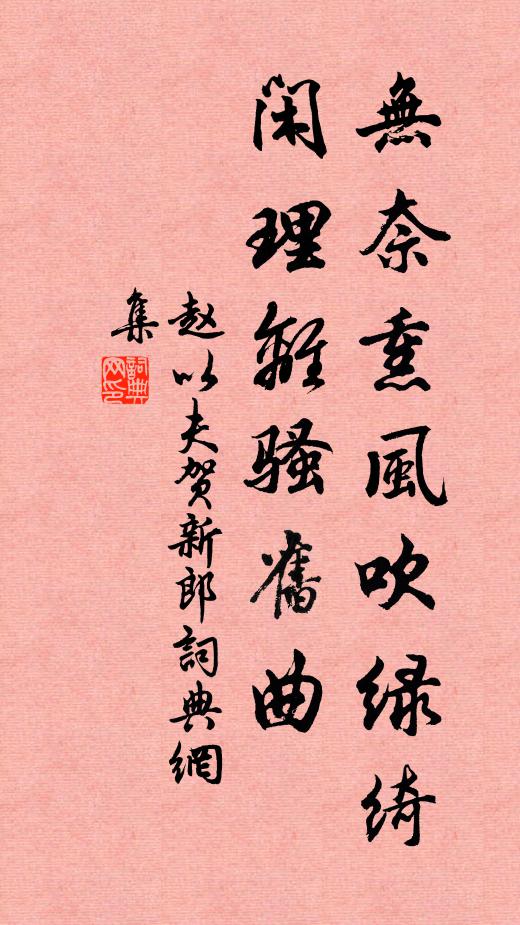 無奈熏風吹緑綺
閑理離騷舊曲
赵以夫贺新郎詞典網
集
詞典
网印